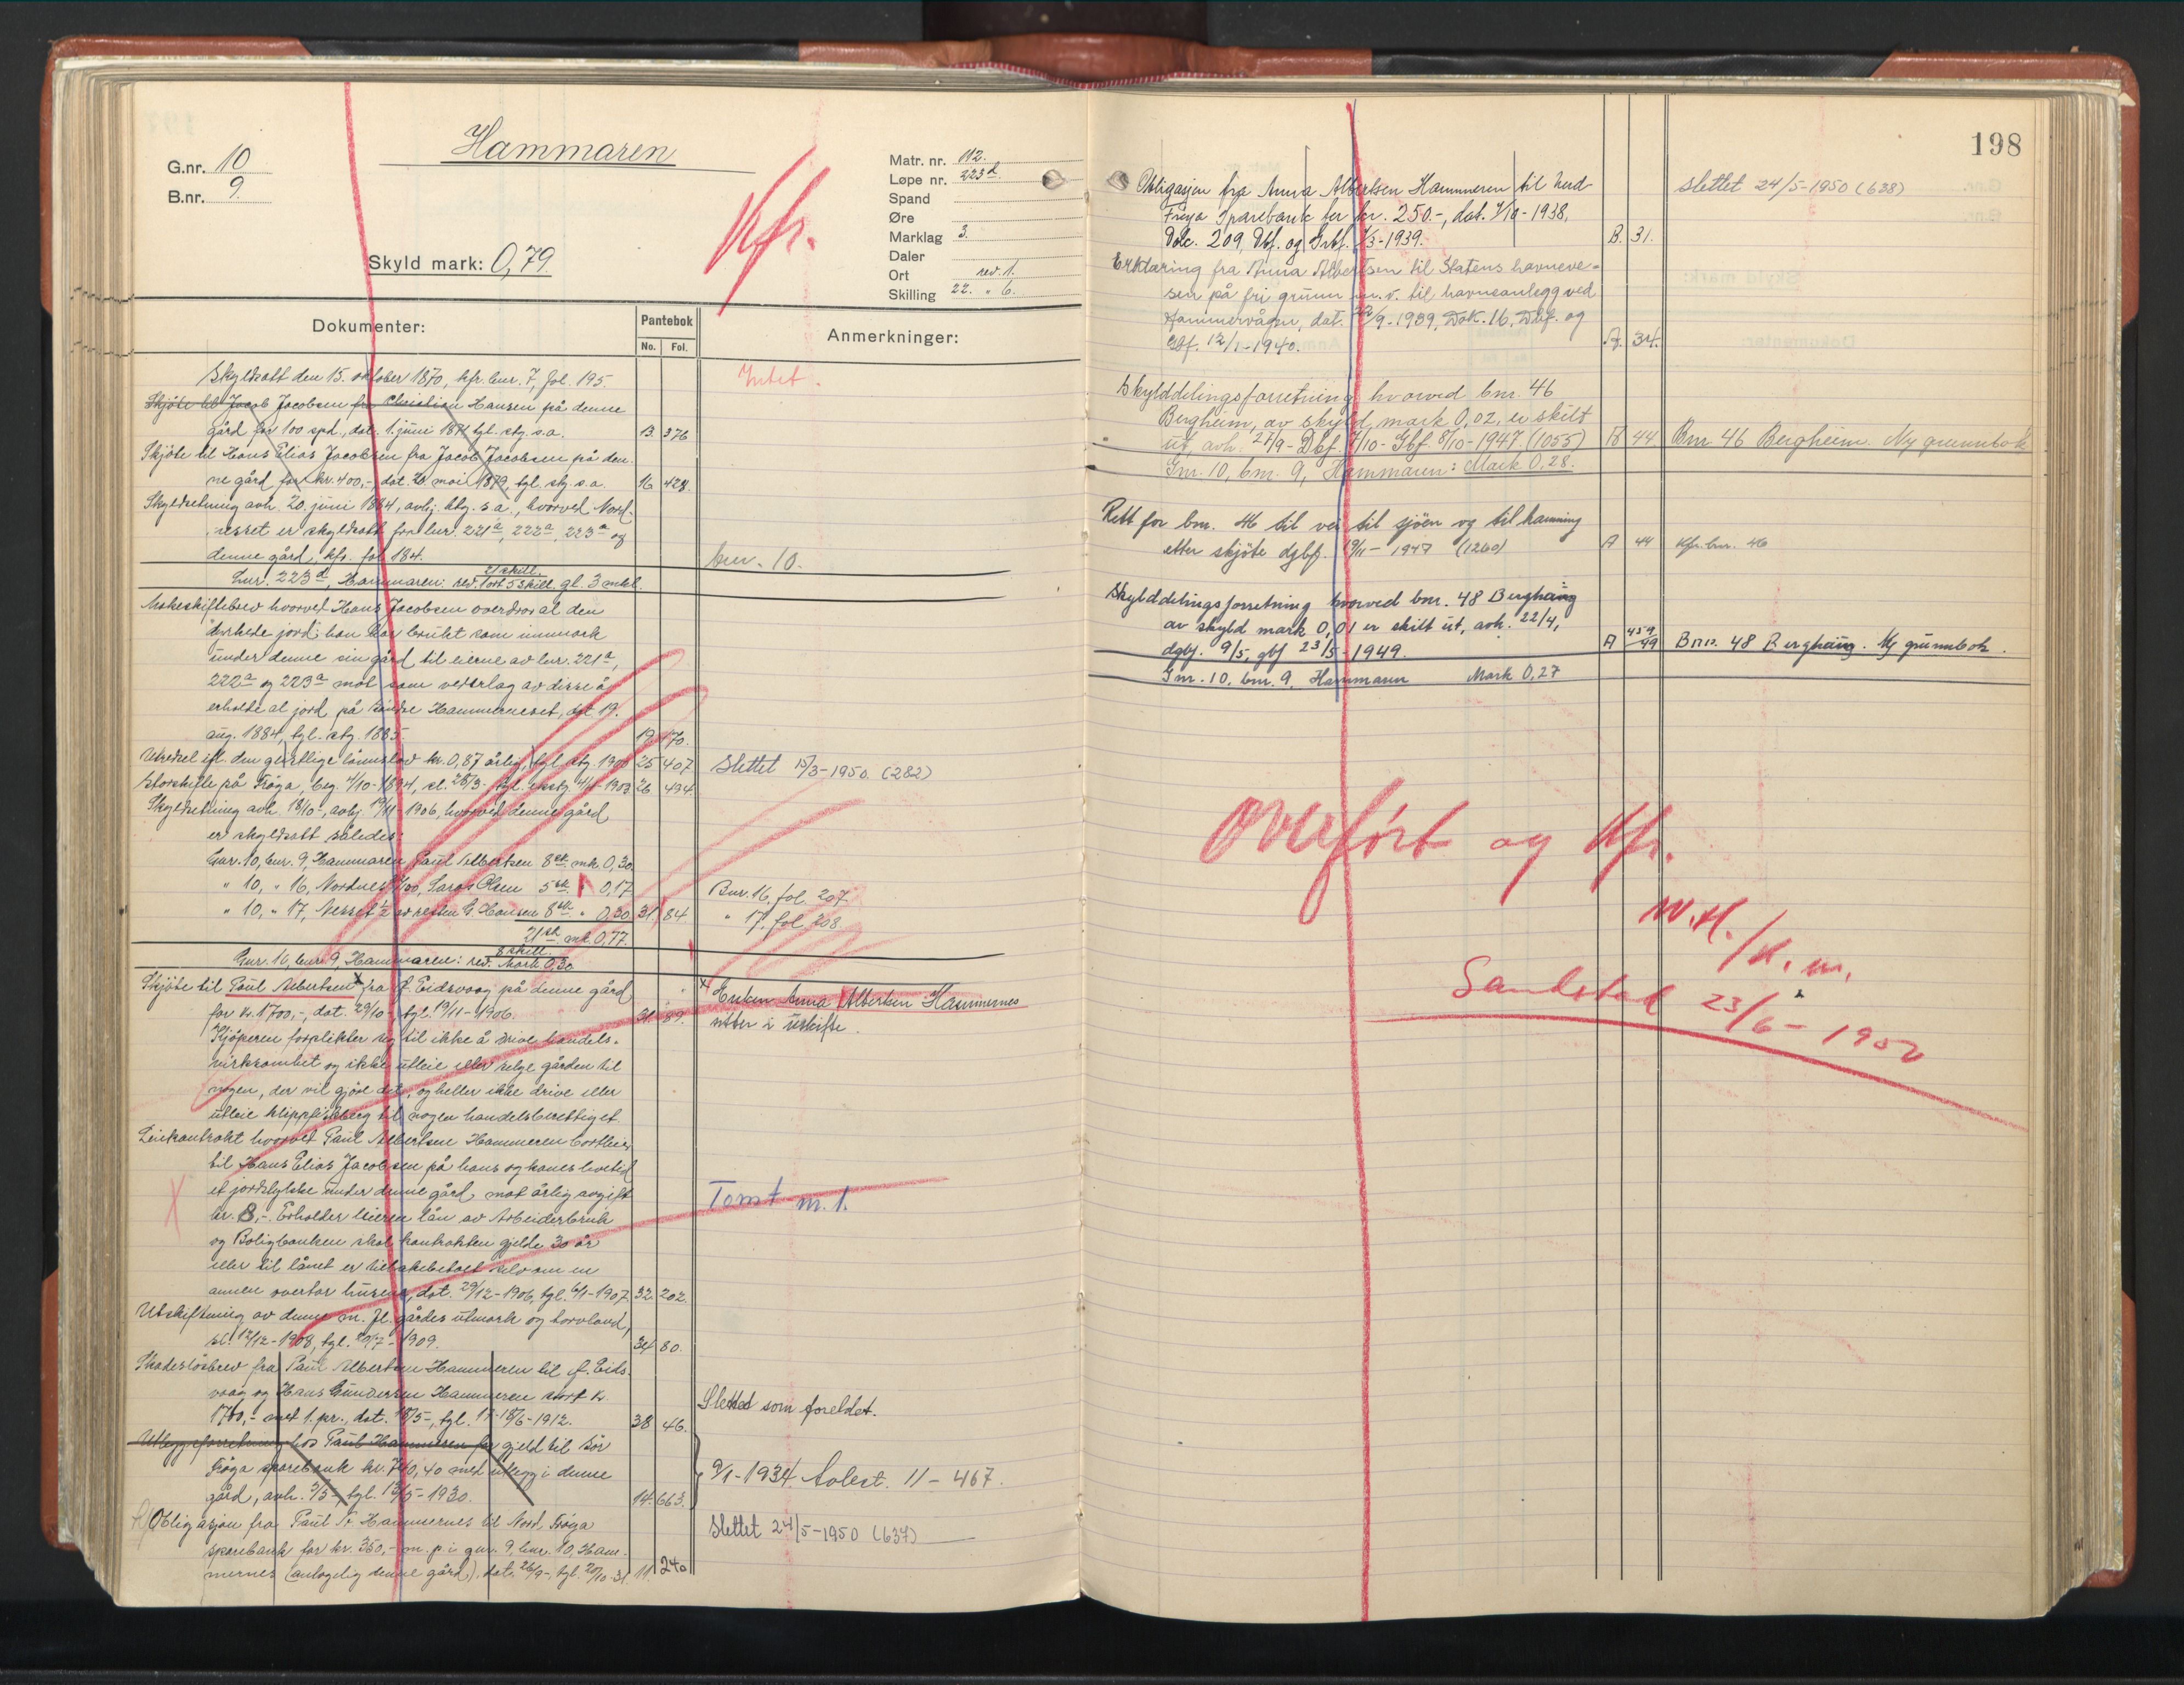 Hammaren
G.nr. 10
B.nr. 9.
Skyld mark: 0,79.
Kfr.
Matr. nr. 112.
Løpe nr. 223d
Spand
Øre
Marklag 3.
Daler
Ort rev. 1.
Skilling 22. " 6.
Dokumenter:
Pantebok
No. Fol.
Anmerkninger:
Skyldsatt den 15. oktober 1870, kfr. bnr. 7, fol. 195.
Intet.
Skjöte til Jacob Jacobsen fra Christian Hansen på denne
gård for 100 spd., dat. 1. juni 1871 tgl. stg. s.a. 13. 376
Skjöte til Hans Elias Jacobsen fra Jacob Jacobsen på den-
ne gård for kr. 400,-, dat. 20. mai 1879, tgl. stg. s.a. 16. 428.
Skyldretning avh. 20. juni 1884, avhj. htg. s.a., hvorved Nord-
nesset er skyldsatt for lnr. 221a, 222a, 223a og
denne gård, kfr. fol. 184.
bnr. 10.
21 skill.
Lnr. 223d, Hammaren: rev. 1 ort. 5 skill. gl. 3 mkl.
Makeskiftebrev hvorved Hans Jacobsen overdrar al den
dyrkede jord, han har brukt som innmark
under denne sin gård til eierne av lnr. 221a,
222a og 223a mot som vederlag av disse å
erholde al jord på söndre Hammerneset, dat. 19.
aug. 1884, tgl. stg. 1885. 19. 170.
Utredsel efl. den geistlige lönnslov kr. 0,87 årlig, tgl. stg. 1900 25 407
Slettet 15/3-1950. (282)
Storskifte på Fröya, beg. 4/10-1894, sl. 28/3- tgl. 4/4-1903 26 494
Skyldretning avh. 18/10-, avhj. 19/11-1906, hvorved denne gård
er skyldsatt således:
Gnr. 10, bnr. 9, Hammaren, Paul Albertsen 8 sk. mk. 0,30
" 10, " 16, Nordnes, Lars Olsen 5 sk. " 0,17
Bnr. 16, fol. 207.
" 10, " 17, Nesset 1/2 av resten G. Hansen 8 sk. " 0,30 31. 84.
" 17, fol. 208.
21 sk. mk. 0,77.
8 skill.
Gnr. 10, bnr. 9, Hammaren: rev. Mark 0,30
Skjöte til Paul Albertsen x fra J. Eidsvaag på denne gård
for kr. 1700,-, dat. 29/10-, tgl. 19/11-1906. 31. 89.
x Enken Anna Albertsen Hammernes
sitter i uskifte.
Kjöperen forplikter sig til ikke å drive handels-
virksomhet og ikke utleie eller selge gården til
nogen, der vil gjöre det, og heller ikke drive eller
utleie klippfiskberg til nogen handelsberettiget.
Leiekontrakt hvorved Paul Albertsen Hammeren bortleier
til Hans Elias Jacobsen på hans og kones levetid
et jordstykke under denne gård mot årlig avgift
kr. 8,-. Erholder leieren lån av Arbeiderbruk
og Boligbanken skal kontrakten gjelde 30 år
eller til lånet er tilbakebetalt selv om en
annen overtar husene, dat. 29/12-1906, tgl. 6/4-1907. 32. 202.
Tomt m. 1.
Utskiftning av denne m. fl. gårdes utmark og torvland,
sl. 12/12-1908, tgl. 20/7-1909. 34 80.
Skadeslösbrev fra Paul Albertsen Hammeren til J. Eids-
vaag og Hans Gundersen Hammeren stort kr.
1700,- med 1. pr., dat. 18/5-, tgl. 17-18/6-1912. 38 46.
Slettet som foreldet.
Utleggsforretning hos Paul Hammeren for gjeld til Sör
Fröya sparebank kr. 740,40 med utlegg i denne
gård, avh. 3/5-, tgl. 13/5-1930. 14. 663.
9/1-1934. Avlest. 11-467.
Obligasjon fra Paul A. Hammernes til Nord Fröya
sparebank for kr. 350,- m. p. i gnr. 9, bnr. 10, Ham-
mernes (antagelig denne gård), dat. 26/9-, tgl. 20/10-31. 11. 240
Slettet 24/5-1950 (637)
198
Obligasjon fra Anna Albertsen Hammeren til Nord-
Fröya Sparebank for kr. 250.-, dat. 1/10-1938,
Dok. 209, Dbf. og Grbf. 1/3-1939. B. 31.
Slettet 24/5-1950 (638)
Erklæring fra Anna Albertsen til Statens havneve-
sen på fri grunn m.v. til havneanlegg ved
Hammervågen, dat. 22/9-1939, Dok. 16, Dbf. og
Gbf. 12/1-1940. A. 34.
Skylddelingsforretning hvorved bnr. 46
Bergheim, av skyld mark 0,02, er skilt
ut, avh. 27/9- Dbf. 7/10- Gbf. 8/10-1947. (1055) A 44
Bnr 46 Bergheim. Ny grunnbok
Gnr. 10, bnr. 9, Hammaren: Mark 0,28.
Rett for bnr. 46 til vei til sjöen og til havning
etter skjöte dgbf. 19/11-1947 (1260) A 44
Kfr. bnr. 46
Skylddelingsforretning hvorved bnr. 48 Berghaug
av skyld mark 0,01 er skilt ut, avh. 22/4,
dgbf. 9/5, gbf 23/5-1949. A 459/49
Bnr. 48 Berghaug. Ny grunnbok.
Gnr. 10, bnr. 9, Hammaren Mark 0,27
Overført og Kfr.
W.H./K.M.
Sandstad 23/6-1952